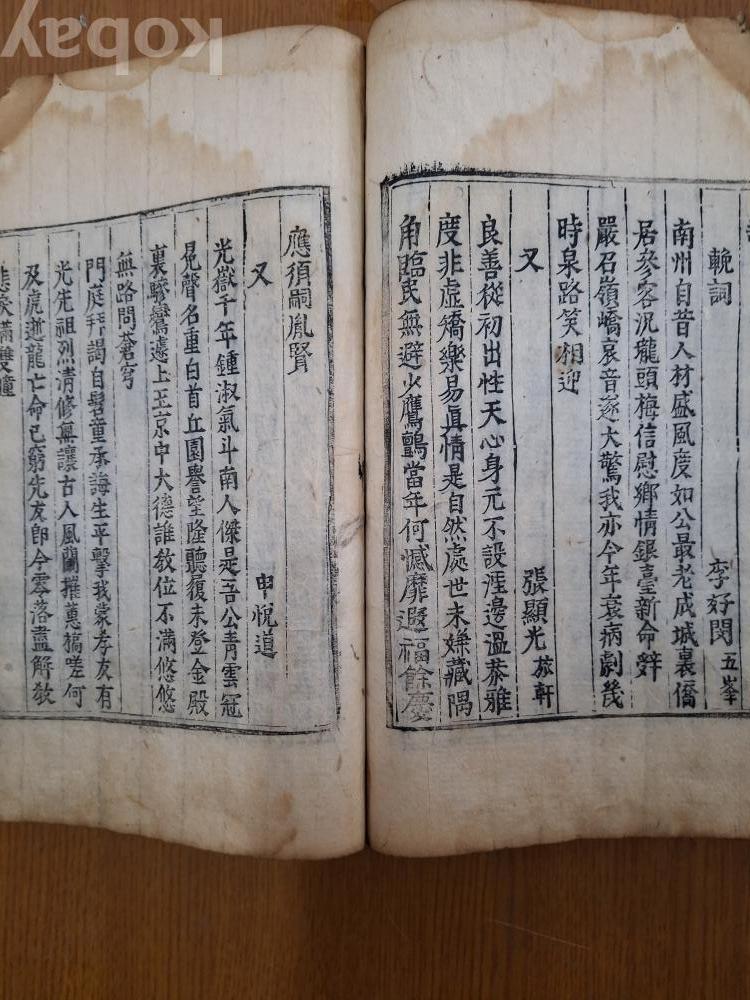 輓詞
李好閔 五峯
南州自昔人材盛風度如公最老成城裏僑
居參客況隴頭梅信慰鄉情銀臺新命辭
嚴召嶺嶠哀音遂大驚我亦今年衰病劇幾
時泉路笑相迎
又
張顯光 旅軒
良善從初出性天心身元不設涯邊溫恭雅
度非虛矯樂易眞情是自然處世未嫌藏隅
角臨民無避少鷹鸇當年何憾靡遐福餘慶
應須嗣胤賢
又
申悅道
光嶽千年鍾淑氣斗南人傑是吾公靑雲冠
冕聲名重白首丘園譽望隆聽履未登金殿
裏驂鸞遽上玉京中大德誰敎位不滿悠悠
無路問蒼穹
門庭拜謁自髫童承誨生平擊我蒙孝友有
光先祖烈淸修無讓古人風蘭摧蕙槁嗟何
及虎逝龍亡命已窮先友卽今零落盡解敎
悲淚滿雙瞳
kobay